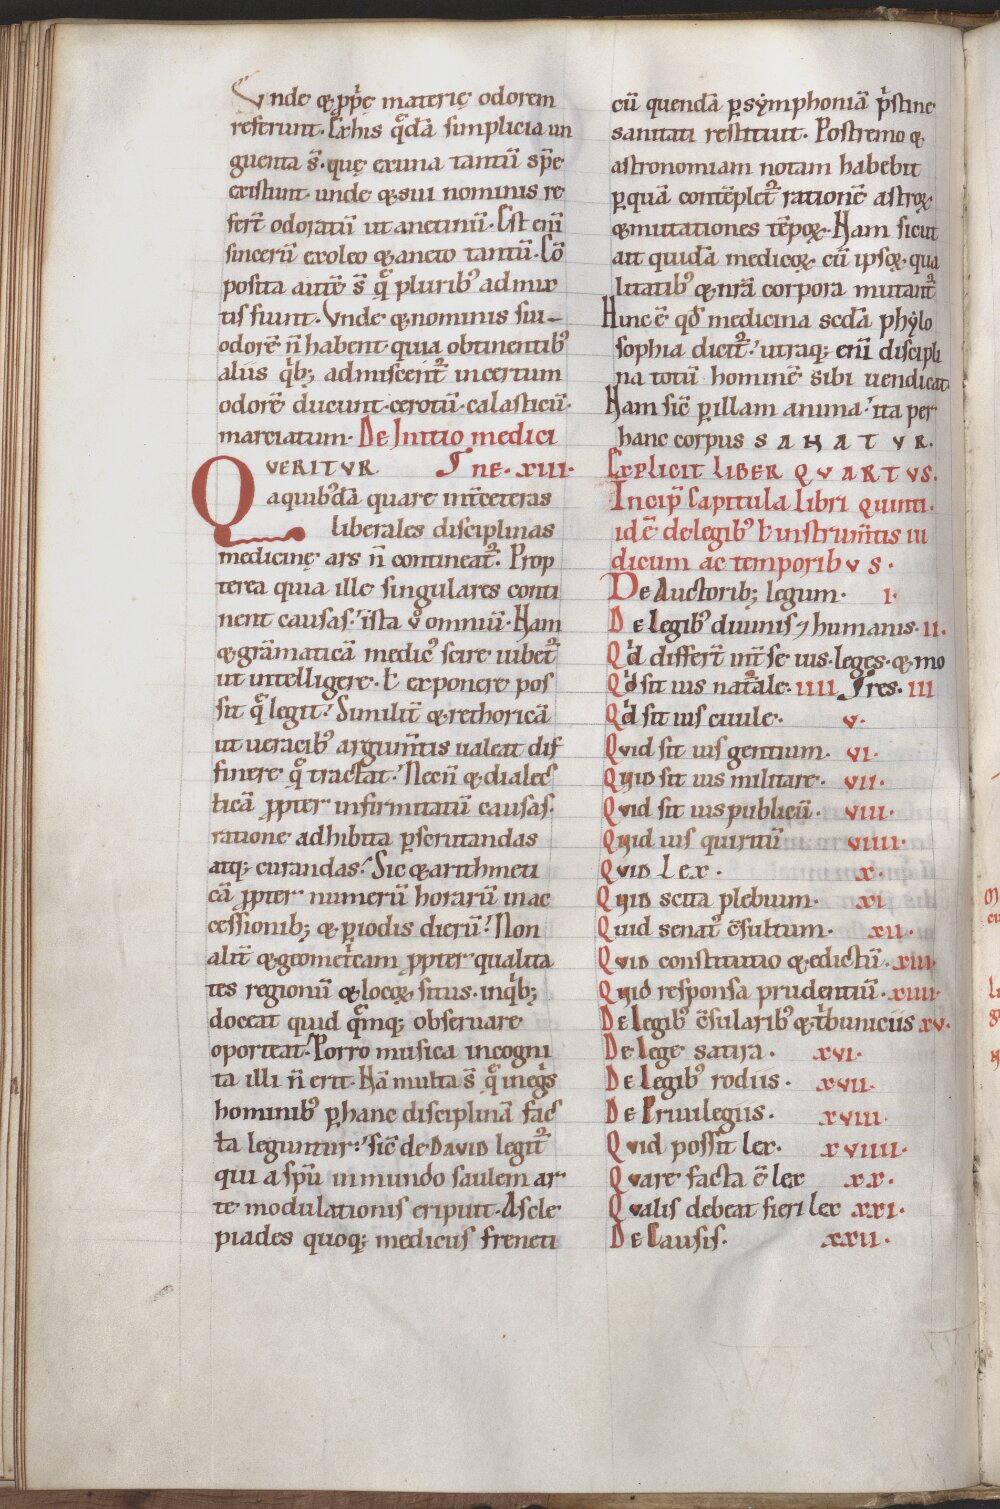 Vnde & ꝓpͥę materię odorem
referunt. Ex his q̄dā simplicia un
guenta s̄. quę ex una tantū spē̄
existunt. unde & sui nominis re
fer̄t odoratū ut anetinū. Est enī
sincerū ex oleo & aneto tantū. Cō
posita autē s̄ q̄ pluribꝰ admix
tis fiunt. Vnde & nominis sui
odorē n̄ habent. quia obtinentibꝰ
aliis qͥb; admiscent᷑ incertum
odorē ducunt. cerotū. calasticū.
marciatum. De Initio medici
QVERITVR ne. xiii.
a quibꝰdā quare int̄ ceteras
liberales disciplinas
medicinę ars n̄ contineat᷑. Prop
terea quia ille singulares conti
nent causas. ista ů omniū. Nam
& grāmaticā medicꝰ scire iubet᷑
ut intelligere. ł exponere pos
sit q̄ legit. Similit̄ & rethoricā
ut ueracibꝰ argum̄tis ualeat dif
finere q̄ tractat. Necn̄ & dialec
ticā ꝓpter infirmitatū causas.
ratione adhibita ꝑscrutandas
atq; curandas. Sic & arithmeti
cā ꝓpter numerū horarū in ac
cessionib; & ꝑiodis dierū. Non
alit̄ & geometͥcam ꝓpter qualita
tes regionū & locoꝝ situs. inqͥb;
doceat quid q̄mq; obseruare
oporteat. Porro musica incogni
ta illi n̄ erit. Nā multa s̄ q̄ in egͥs
hominibꝰ ꝑ hanc disciplinā fac
ta leguntur. sic̄ de DAVID legit᷑
qui a spū inmundo saulem ar
te modulationis eripuit. Ascle
piades quoq; medicus freneti
cū quendā ꝑ sẏmphoniā pͥstine
sanitati restituit. Postremo &
astronomiam notam habebit
ꝑ quā contēplet᷑ rationē astroꝝ
& mutationes tēpoꝝ. Nam sicut
ait quidā medicoꝝ. cū ipsoꝝ. qua
litatibꝰ & nr̄a corpora mutant᷑
Hinc ē qđ medicina scđa phẏlo
sophia dicit᷑. utraq; enī discipli
na totū hominē sibi uendicat.
Nam sic̄ ꝑ illam anima. ita per
hanc corpus SANATVR.
Explicit LIBER QVARTVS.
Incip̄ Capitula Libri quinti.
id ē de legibꝰ ł instrum̄tis iu
dicum ac temporibus.
De Auctorib; legum. i.
De legibꝰ diuinis ⁊ humanis. ii.
Qͥd differt̄ int̄ se ius. leges. & mo
Qͥd sit ius nat᷑ale. iiii res. iii
Qͥd sit ius ciuile. v.
Quid sit ius gentium. vi.
Quid sit ius militare. vii.
Quid sit ius publicū. viii.
Quid ius quiritū viiii.
Quid Lex. x.
Quid scita plebium. xi
Quid senatꝰ c̄sultum. xii.
Quid constitutio & edictū. xiii.
Quid responsa prudentiū. xiiii.
De legibꝰ c̄sularibꝰ & tͥbuniciis xv.
De lege satira. xvi.
De legibꝰ rodiis. xvii.
De Priuilegiis. xviii.
Quid possit lex. xviiii.
Quare facta ē lex xx.
Qualis debeat fieri lex xxi.
De Causis. xxii.